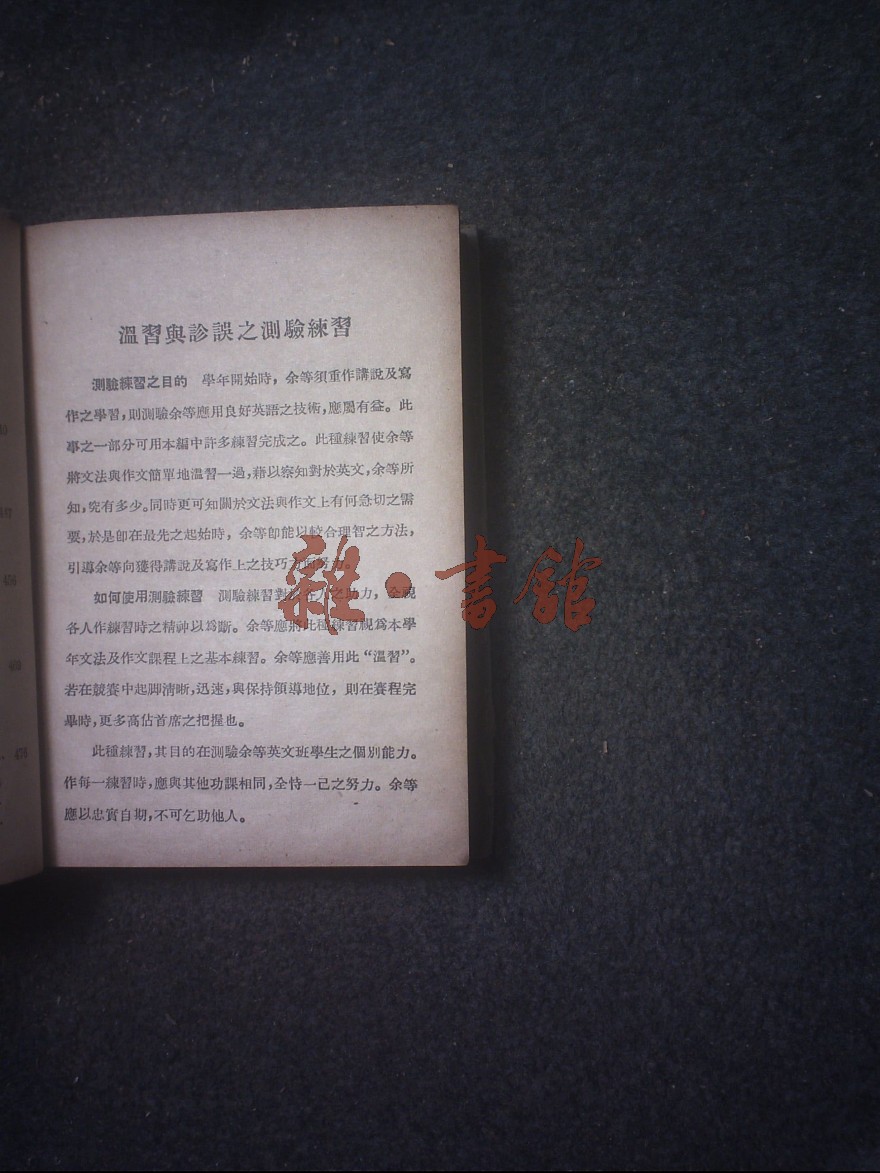 溫習與診誤之測驗練習
測驗練習之目的　學年開始時，余等須重作講說及寫
作之學習，則測驗余等應用良好英語之技術，應屬有益。此
事之一部分可用本編中許多練習完成之。此種練習使余等
將文法與作文簡單地溫習一過，藉以察知對於英文，余等所
知，究有多少。同時更可知關於文法與作文上有何急切之需
要，於是卽在最先之起始時，余等卽能以較合理智之方法，
引導余等向獲得講說及寫作上之技巧方面努力。
如何使用測驗練習　測驗練習對於各人之助力，全視
各人作練習時之精神以爲斷。余等應將此種練習視爲本學
年文法及作文課程上之基本練習。余等應善用此“溫習”。
若在競賽中起脚清晰，迅速，與保持領導地位，則在賽程完
畢時，更多高佔首席之把握也。
此種練習，其目的在測驗余等英文班學生之個別能力。
作每一練習時，應與其他功課相同，全恃一己之努力。余等
應以忠實自期，不可乞助他人。
雜·書館